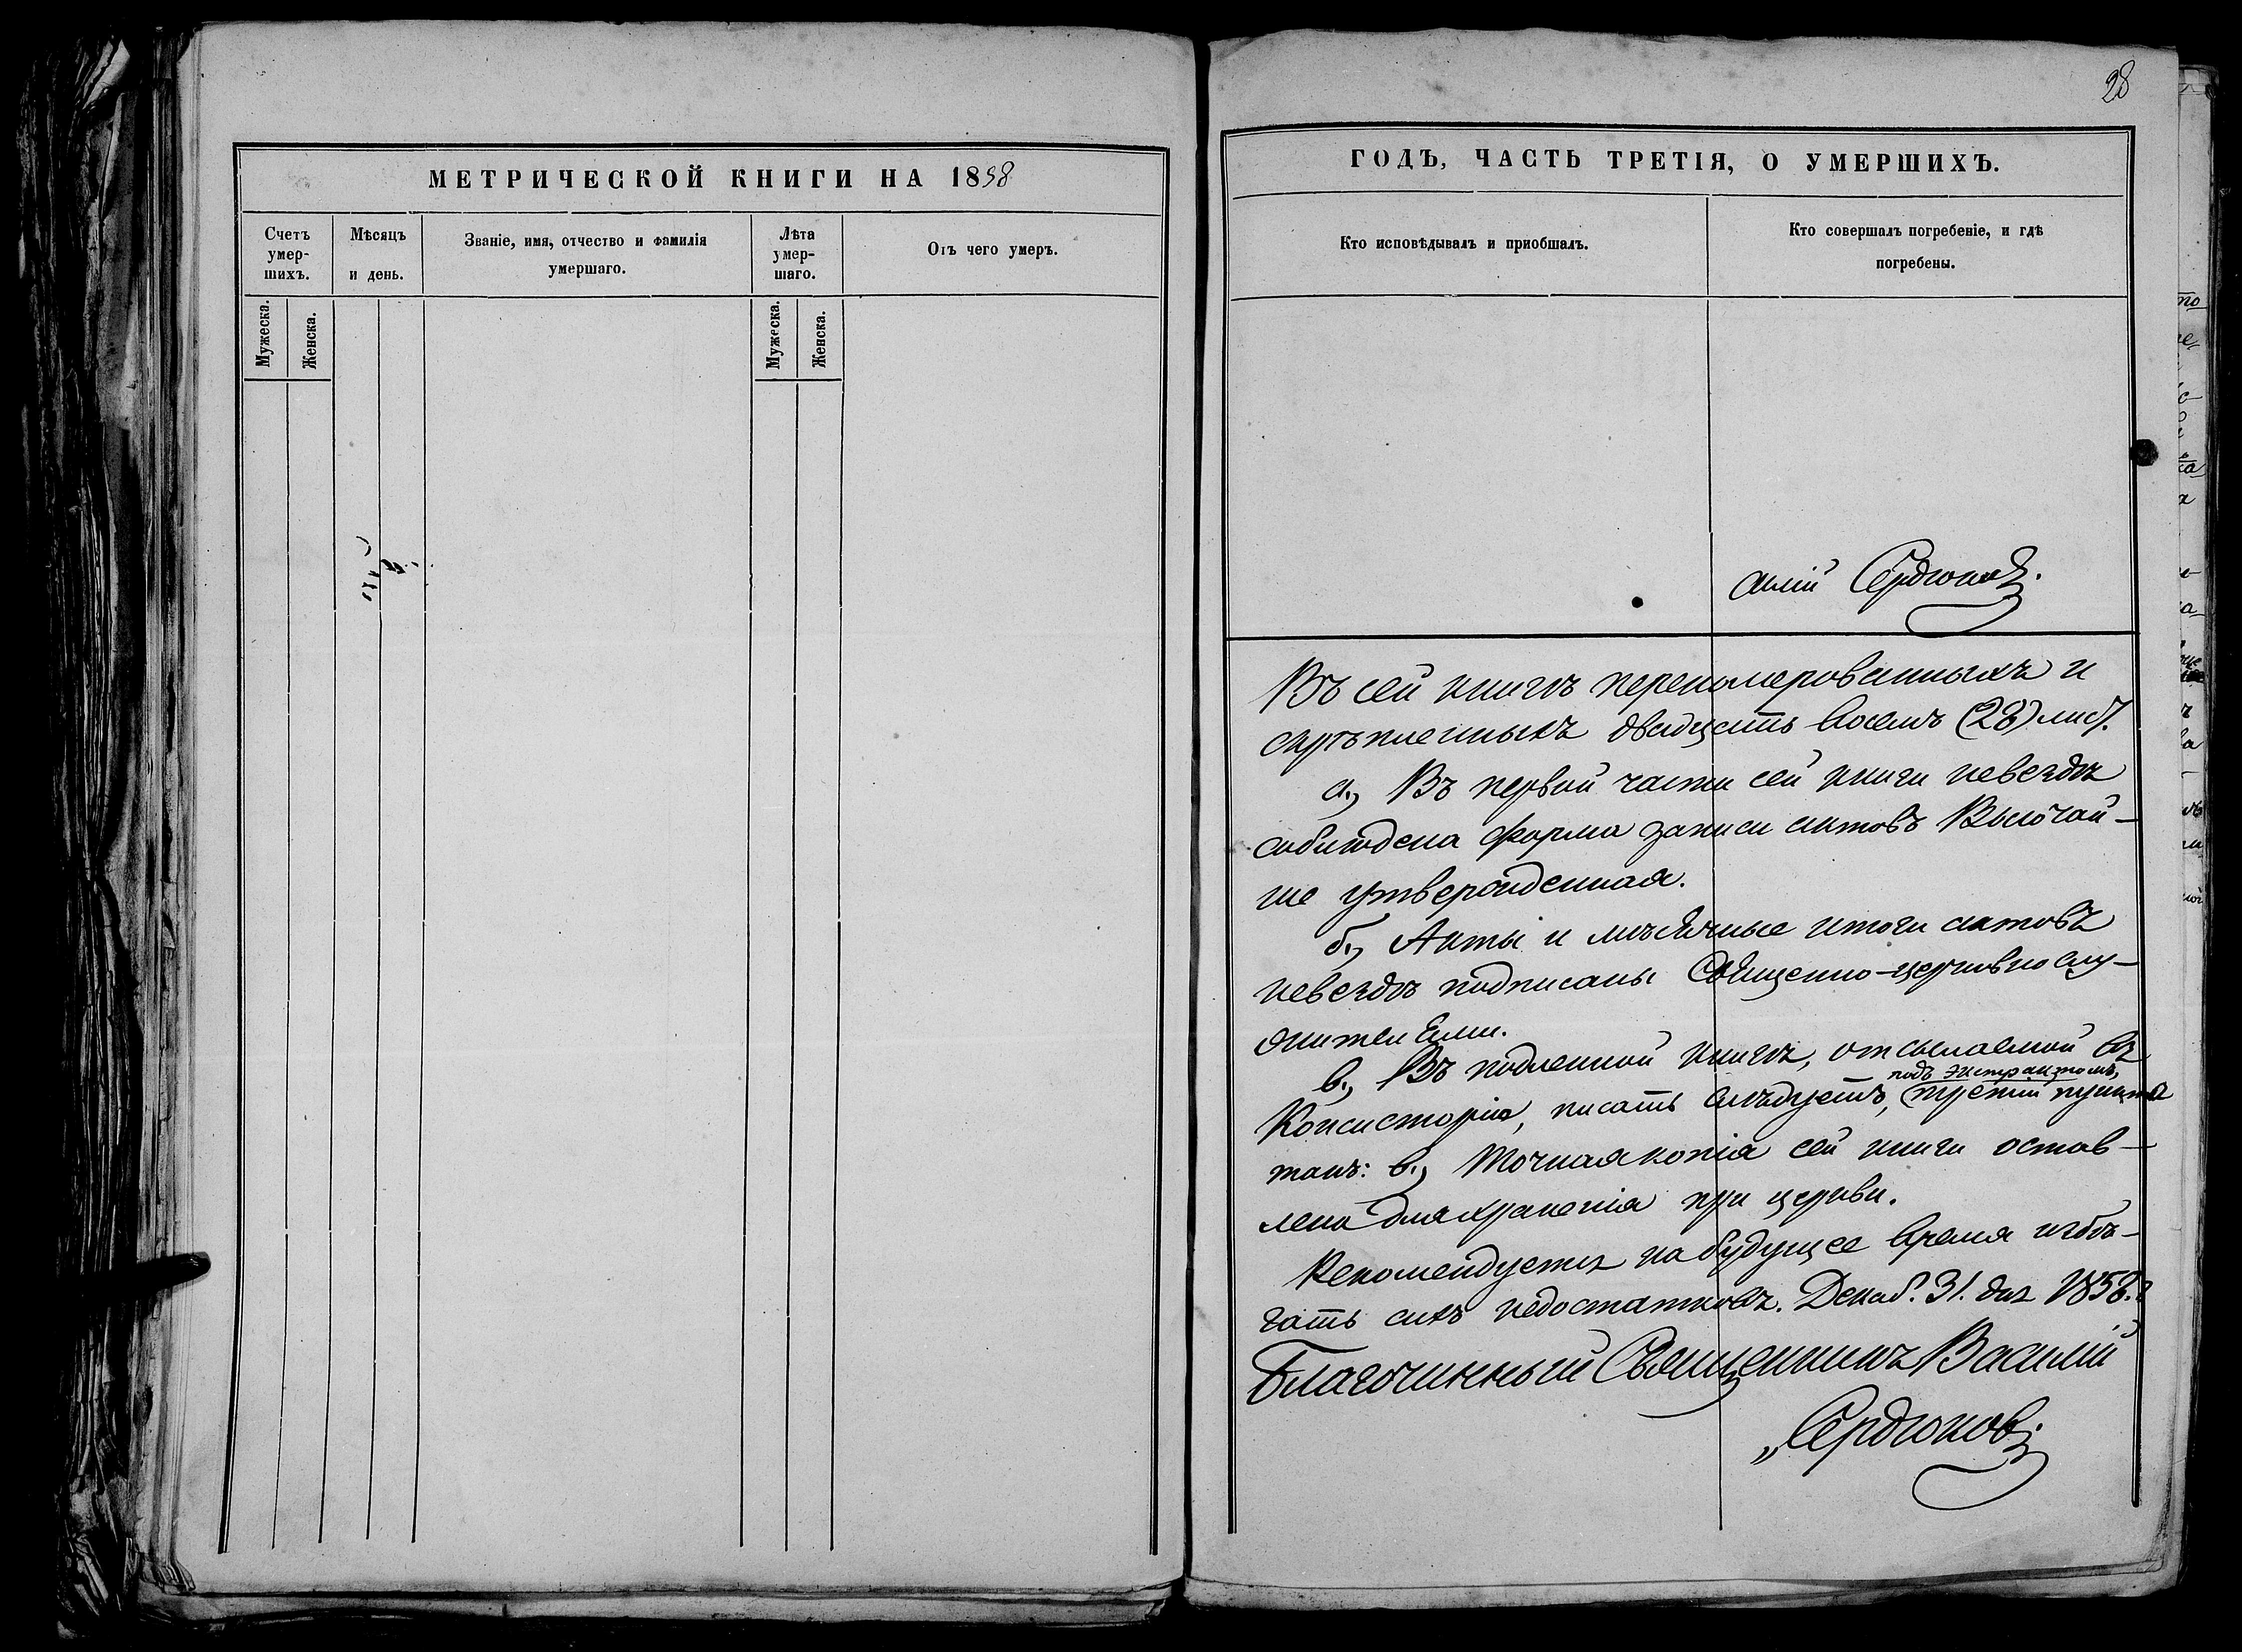 28
МЕТРИЧЕСКОЙ КНИГИ НА 1858
Счетъ умер-шихъ.
Мѣсяцъ и день.
Званіе, имя, отчество и фамилія умершаго.
Лѣта умер-шаго.
Отъ чего умеръ.
Мужеска.
Женска.
Мужеска.
Женска.
ГОДЪ, ЧАСТЬ ТРЕТІЯ, О УМЕРШИХЪ.
Кто исповѣдывалъ и пріобщалъ.
Кто совершалъ погребеніе, и гдѣ
погребены.
силій Сердюковъ.
Въ сей книгѣ переномерованныхъ и
скрѣпленныхъ двадцать восемь (28) лист.
а., Въ первой части сей книги невездѣ
соблюдена форма записи актовъ Высочай-
ше утвержденная.
б., Акты и мѣсячные итоги актовъ
невездѣ подписаны Священно-церковнослу-
жителями.
в., Въ подленной книгѣ, отсылаемой въ
подъ экстрактомъ,
Консисторію, писать слѣдуетъ, третій пунктъ
такъ: в., Точная копія сей книги остав-
лена для храненія при церкви.
Рекомендуется на будущее время избѣ-
гать сихъ недостатковъ. Декаб. 31. дня 1858. г
Благочинный Священникъ Василій
Сердюковъ